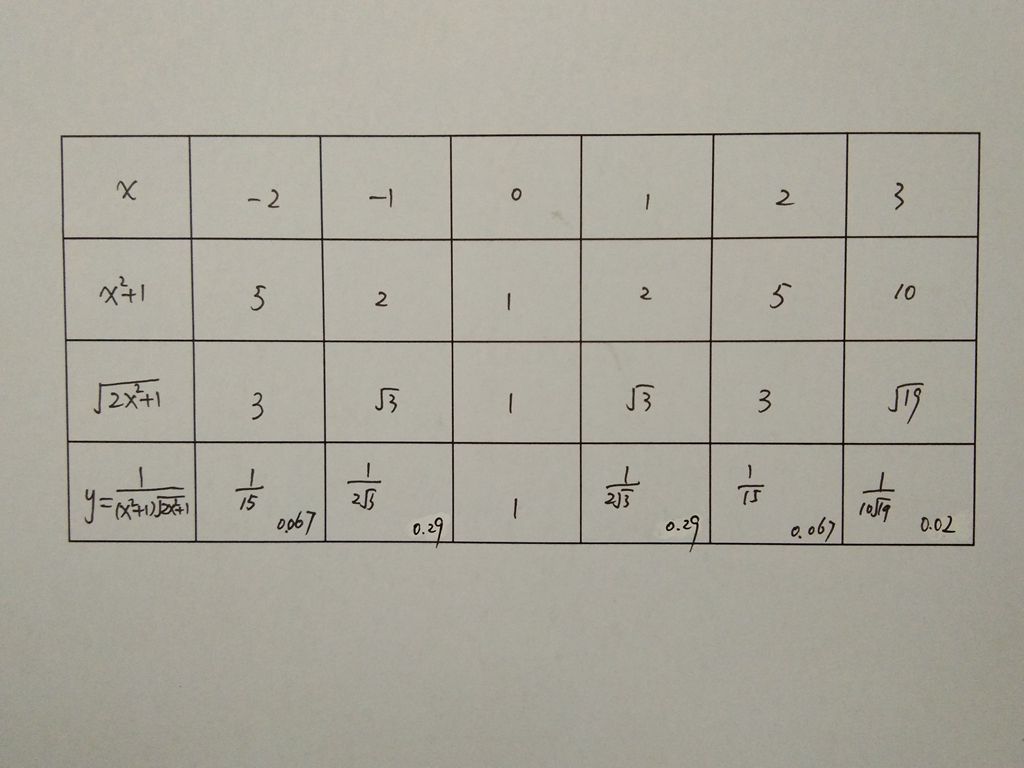 x -2 -1 0 1 2 3
x²+1 5 2 1 2 5 10
√(2x²+1) 3 √3 1 √3 3 √19
y=1/((x²+1)√(2x²+1)) 1/15 0.067 1/(2√3) 0.29 1 1/(2√3) 0.29 1/15 0.067 1/(10√19) 0.02